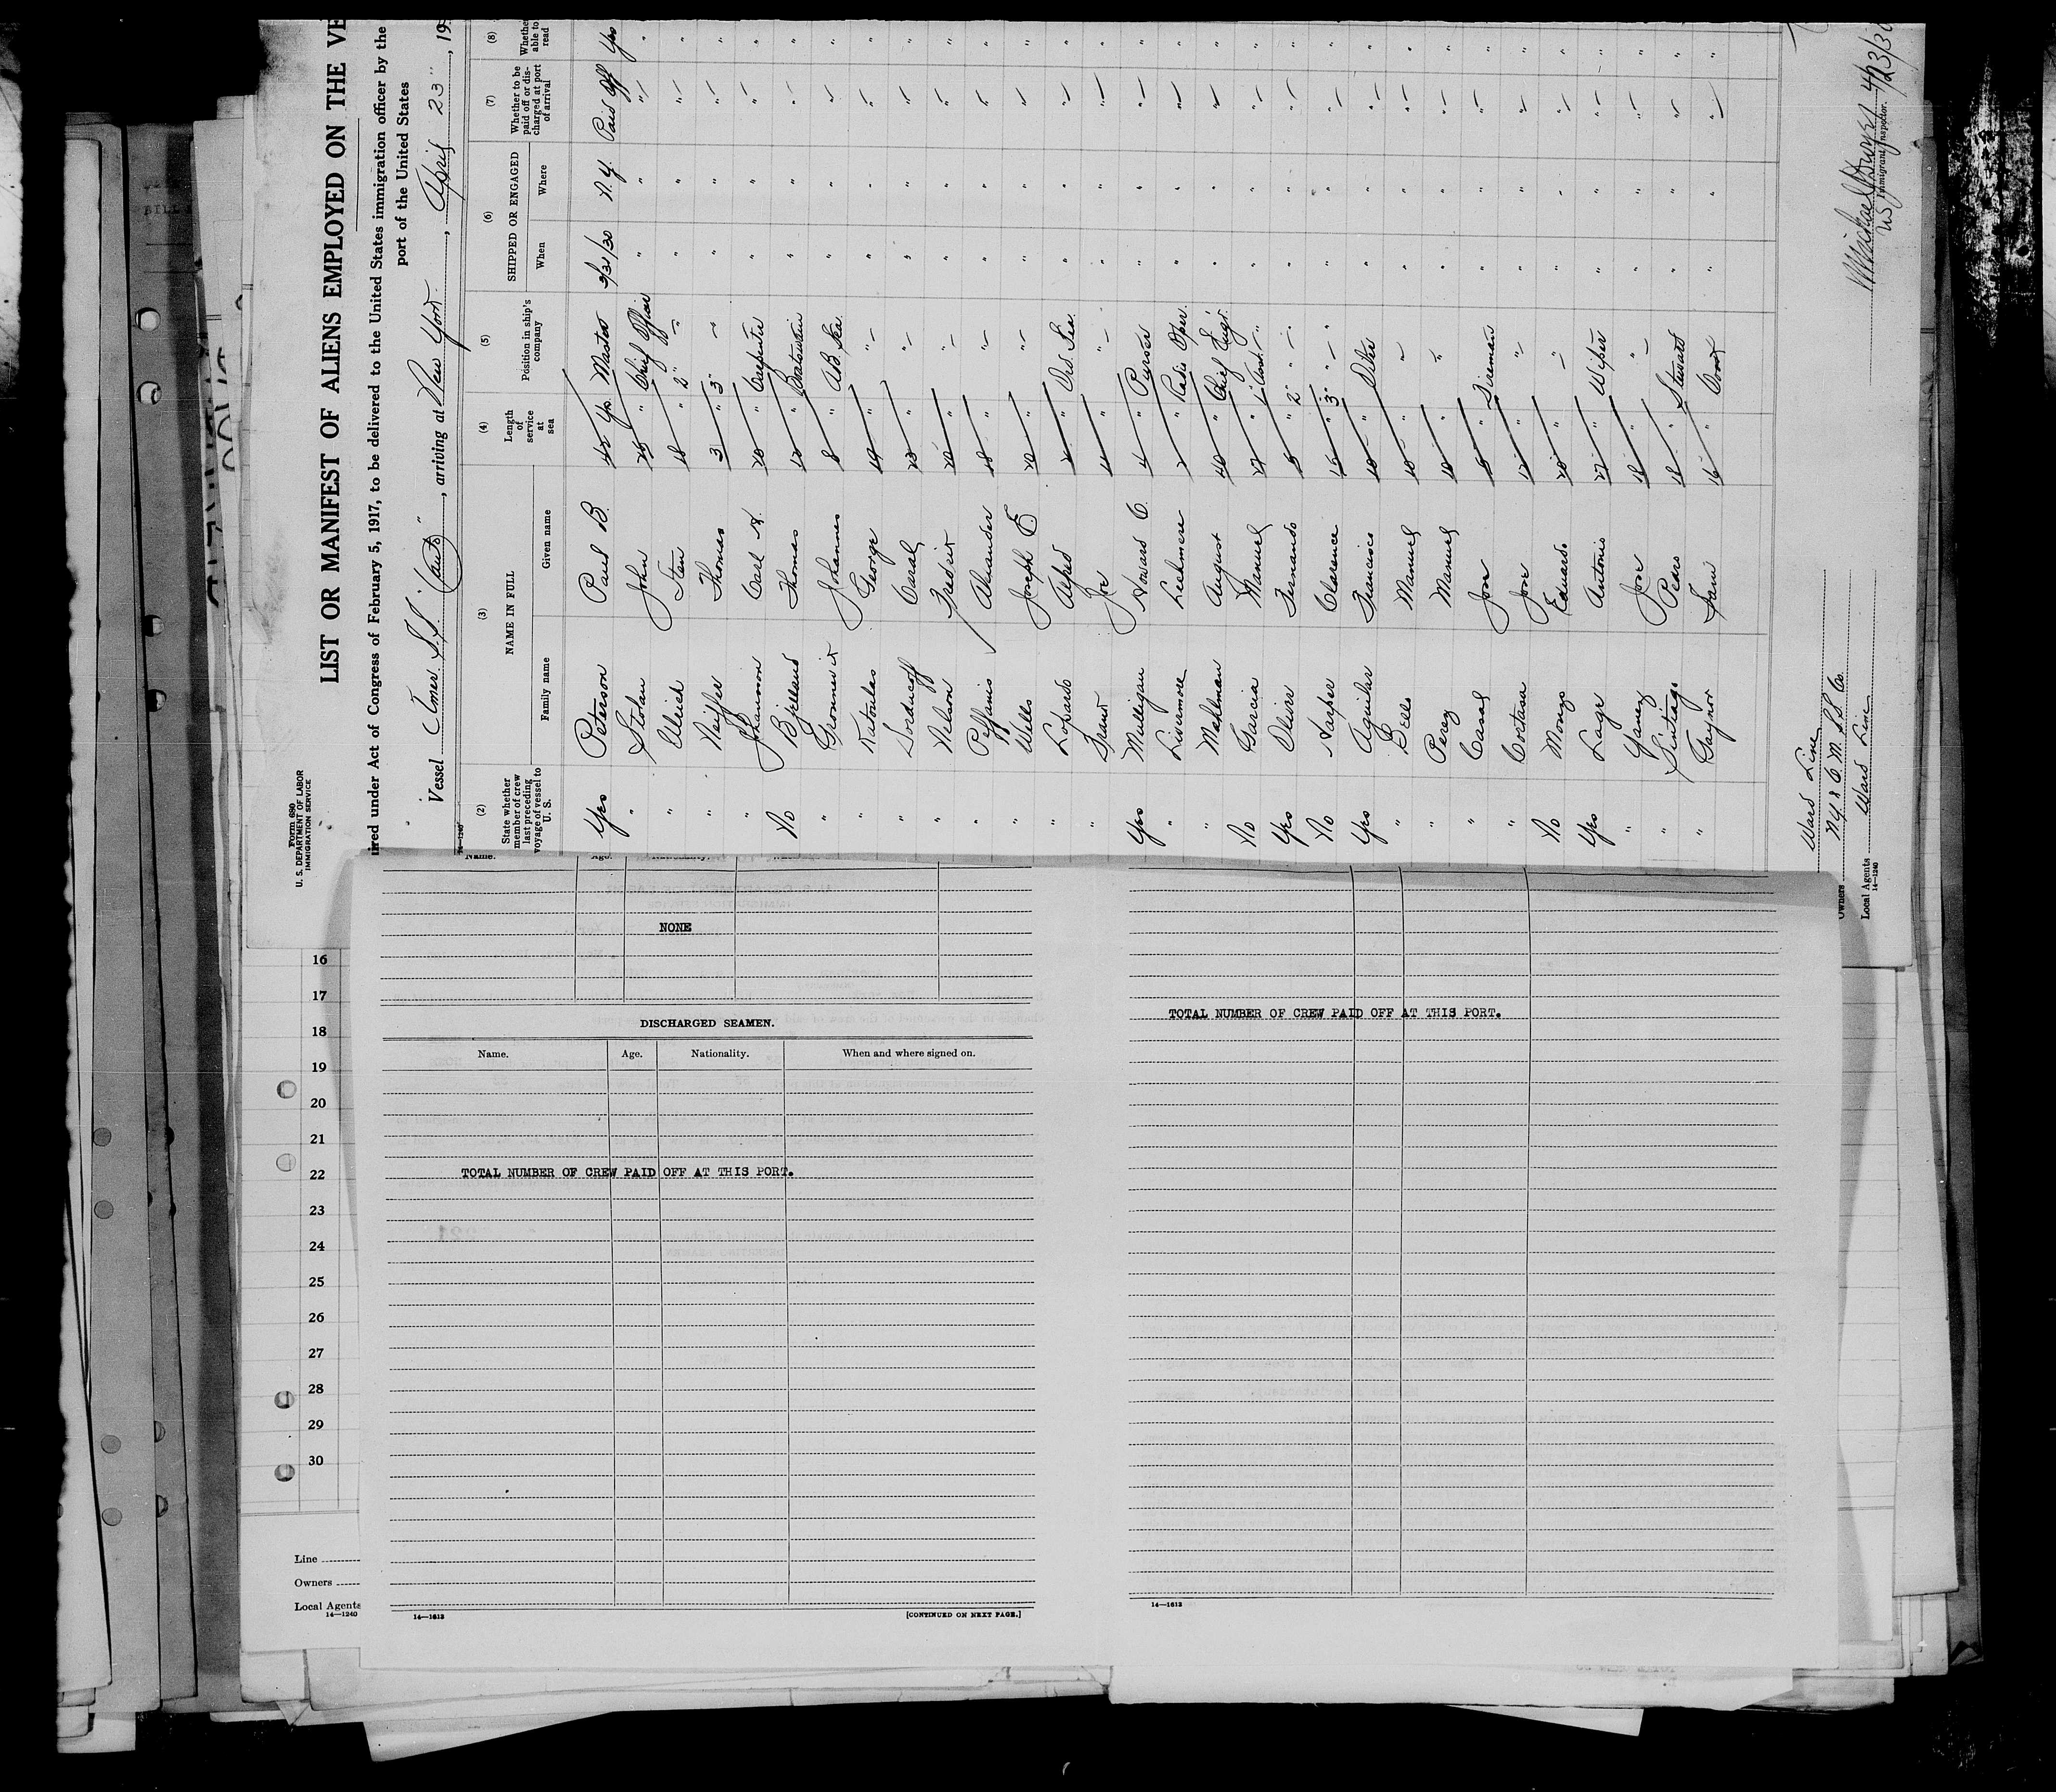 Form 680
U. S. DEPARTMENT OF LABOR
IMMIGRATION SERVICE
LIST OR MANIFEST OF ALIENS EMPLOYED ON THE VE
ired under Act of Congress of February 5, 1917, to be delivered to the United States immigration officer by the
port of the United States
Vessel Amer. S.S. "Cauto", arriving at New York, April 23", 19
14-1240
(2) (3) (4) (5) (6) (7) (8)
State whether member of crew last preceding voyage of vessel to U. S.
NAME IN FULL
Family name Given name
Length of service at sea
Position in ship's company
SHIPPED OR ENGAGED
When Where
Whether to be paid off or discharged at port of arrival
Whether able to read
Yes Peterson Paul B. 42 Yrs Master 3/31/30 N.Y. Paid Off Yes
" Stolan John 25 " Chief Officer " " " "
" Ulrich Sten 18 " 2" " " " " "
" Neiffer Thomas 3 " 3" " " " " "
" Johansson Carl A. 20 " Carpenter " " " "
No Bjelland Thomas 12 " Boatswain " " " "
" Johannes 8 " AB Sea. " " " "
" Katoulas George 19 " " " " " "
" Carl 23 " " " " " "
" Nelson Fredrick 20 " " " " " "
" Peffanis Alexander 18 " " " " " "
" Wells Joseph E. 20 " " " " " "
" Lopardo Alfred " Ord. Sea. " " " "
" Joe " " " " " "
Yes Mulligan Howard C. 4 " Purser " " " "
" Livermore Leehmere " Radio Oper. " " " "
" Mahlman August 40 " Chief Engr. " " " "
No Garcia Manuel 27 " 1" Asst. " " " " "
Yes Oliver Fernando 5 " 2" " " " " "
No Harper Clarence 15 " 3" " " " " "
Yes Aguilar Francisco 10 " Oiler " " " "
" Bello Manuel 10 " " " " " "
" Perez Manuel 10 " " " " " "
" Casas Jose " Fireman " " " "
" Cortasa Jose 12 " " " " " "
No Monzo Eduardo 20 " " " " " "
Yes Lage Antonio 27 " Wiper " " " "
" Yanez Jose 18 " " " " " "
" Sintiago Pears 18 " Steward " " " "
" Gaynor Sam 16 " Cook " " " "
Ward Line
Owners N.Y. & C. M. S.S. Co.
Local Agents Ward Line
14-1240
Immigrant Inspector. 4/23/30
US
Name. Age. Nationality.
NONE
DISCHARGED SEAMEN.
Name. Age. Nationality. When and where signed on.
TOTAL NUMBER OF CREW PAID OFF AT THIS PORT.
14-1613
[CONTINUED ON NEXT PAGE.]
TOTAL NUMBER OF CREW PAID OFF AT THIS PORT.
14-1613
16
17
18
19
20
21
22
23
24
25
26
27
28
29
30
Line
Owners
Local Agents
14-1240